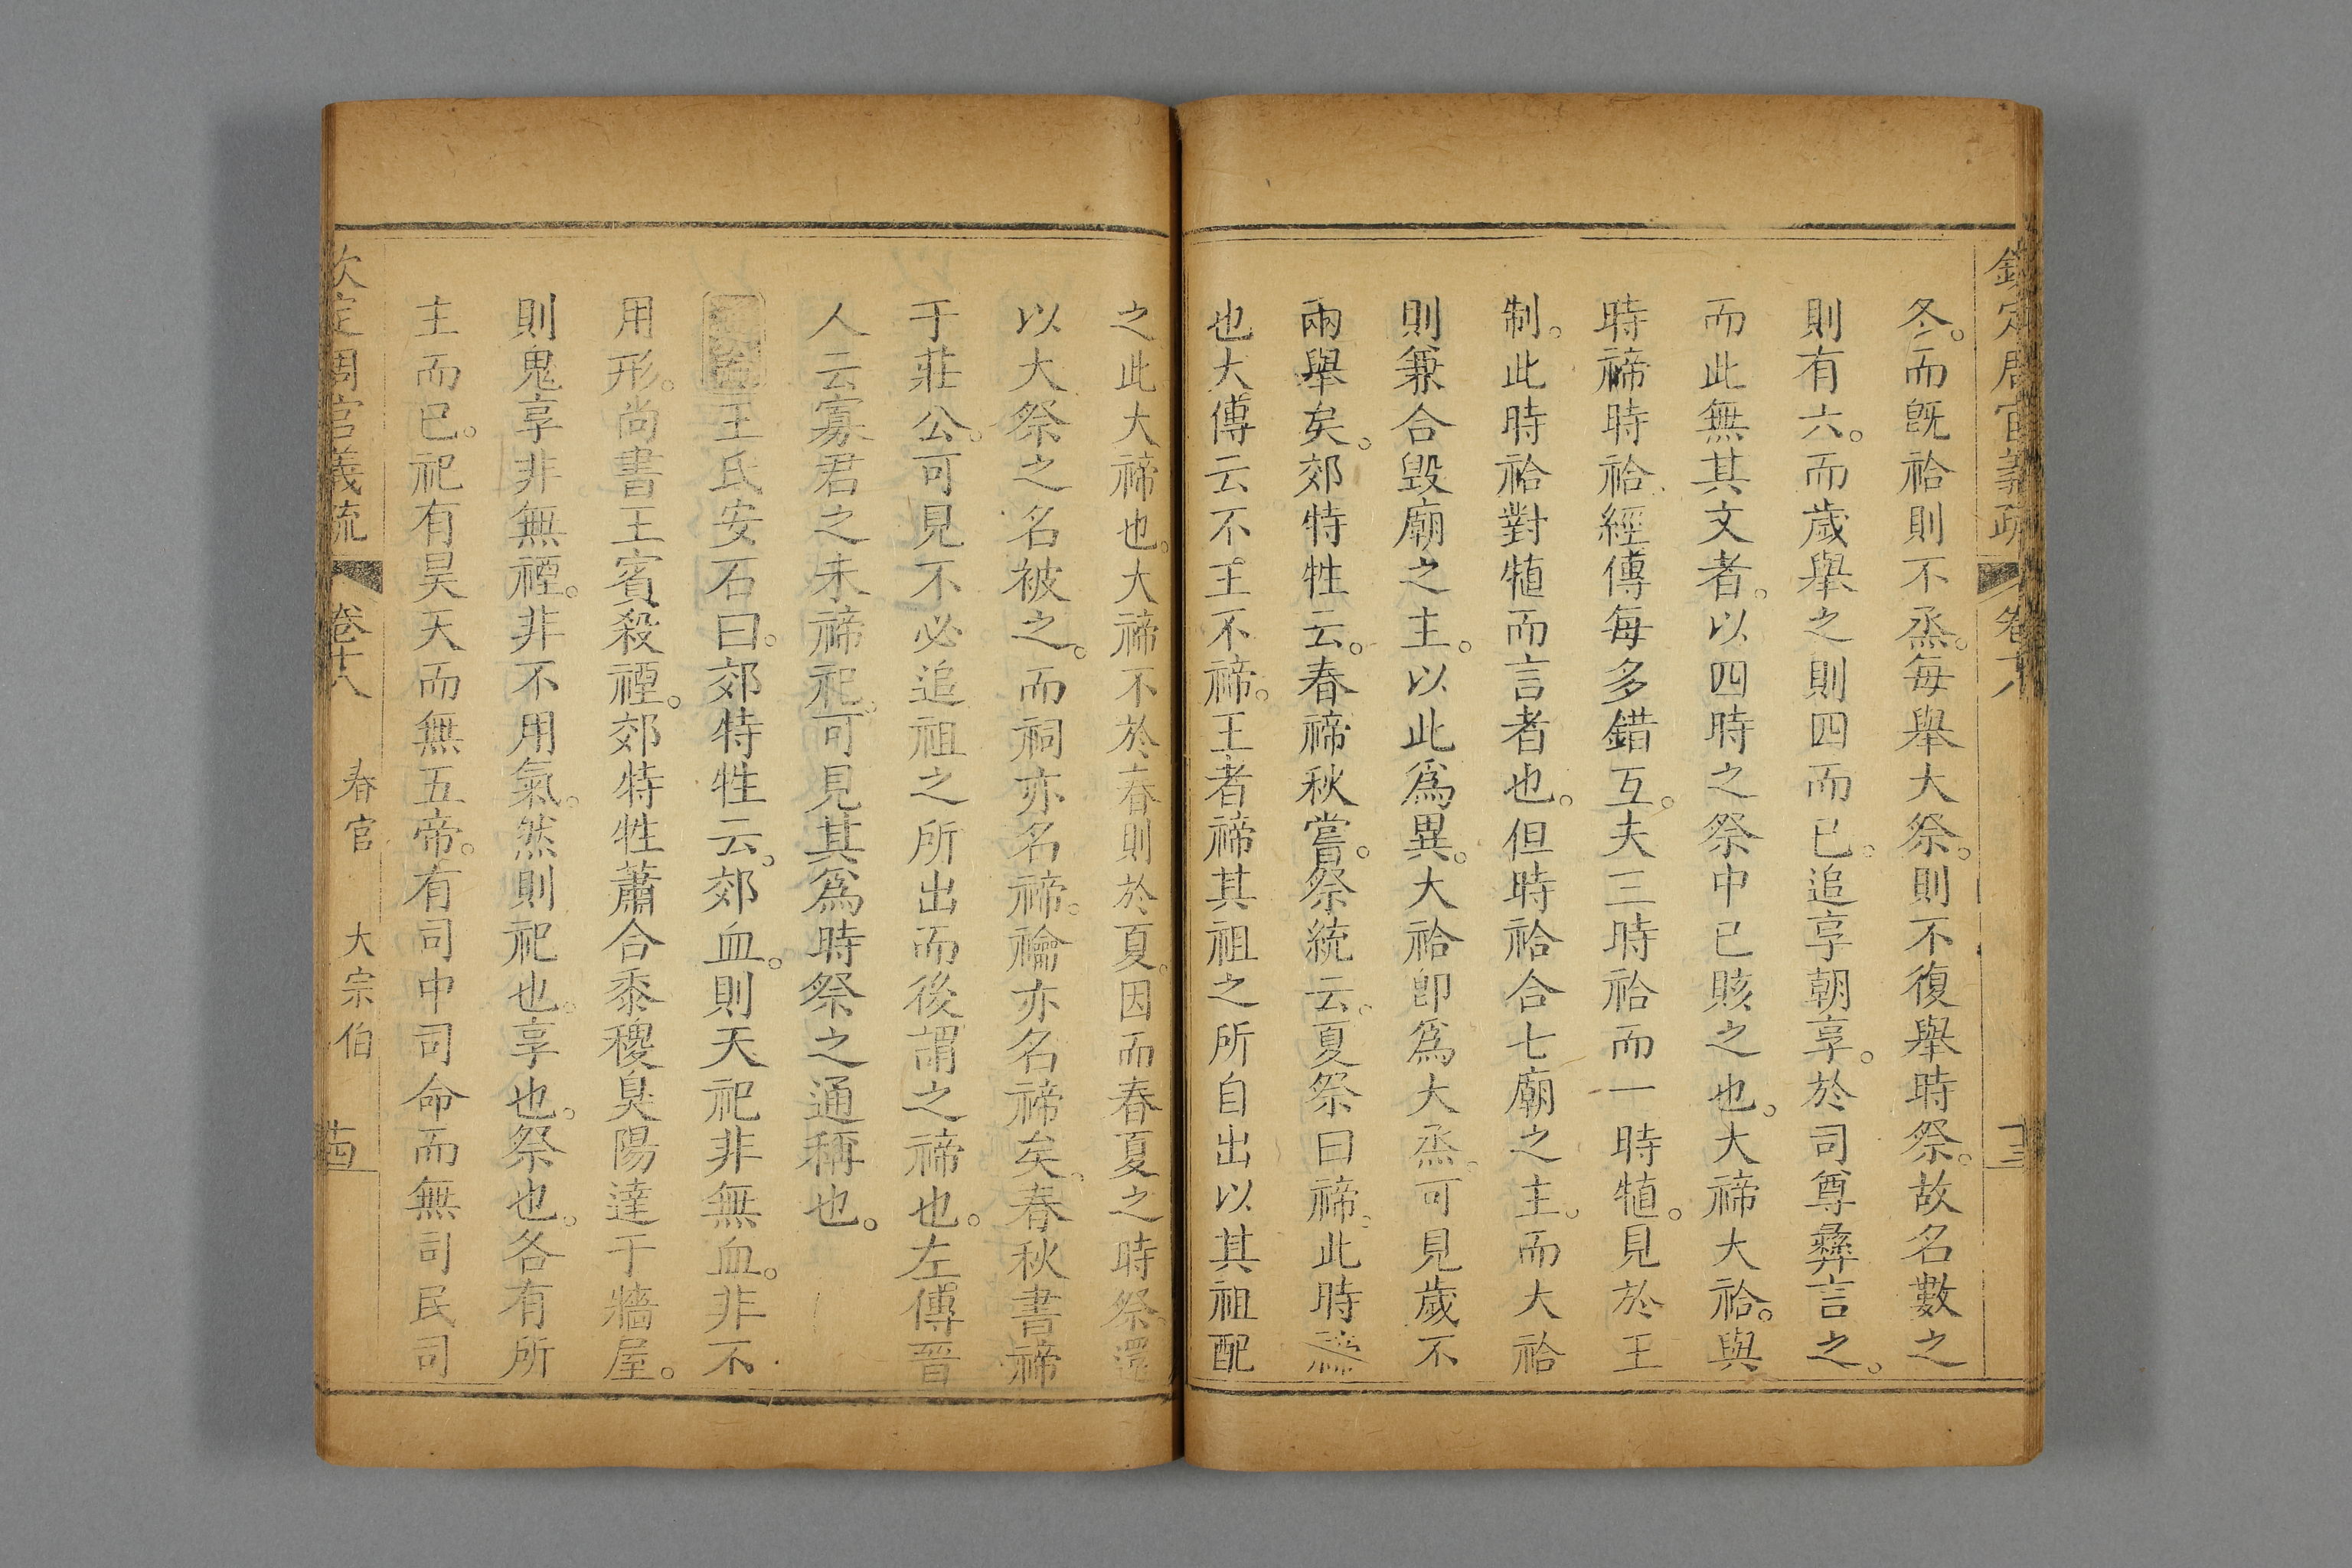 欽定周官義疏 卷十八 十三
冬。而既祫則不烝。每舉大祭。則不復舉時祭。故名數之
則有六。而歲舉之則四而已。追享朝享。於司尊彝言之。
而此無其文者。以四時之祭中已賅之也。大禘大祫。與
時禘時祫。經傳每多錯互。夫三時祫而一時犆。見於王
制。此時祫對犆而言者也。但時祫合七廟之主。而大祫
則兼合毀廟之主。以此為異。大祫卽為大烝。可見歲不
兩舉矣。郊特牲云。春禘秋嘗。祭統云。夏祭曰禘。此時禘
也大傳云不王不禘。王者禘其祖之所自出以其祖配
之此大禘也。大禘不於春則於夏。因而春夏之時祭。還
以大祭之名被之。而祠亦名禘。禴亦名禘矣。春秋書禘
于莊公。可見不必追祖之所出而後謂之禘也。左傳晉
人云寡君之未禘祀。可見其為時祭之通稱也。
王氏安石曰。郊特牲云。郊血。則天祀非無血。非不
用形。尚書王賓殺禋。郊特牲蕭合黍稷臭陽達于牆屋。
則鬼享非無禋。非不用氣。然則祀也。享也。祭也。各有所
主而已。祀有昊天而無五帝。有司中司命而無司民司
欽定周官義疏 卷十八 春官 大宗伯 十四